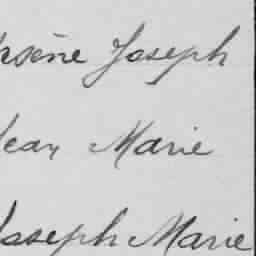 Arsène Joseph
Jean Marie
Joseph Marie